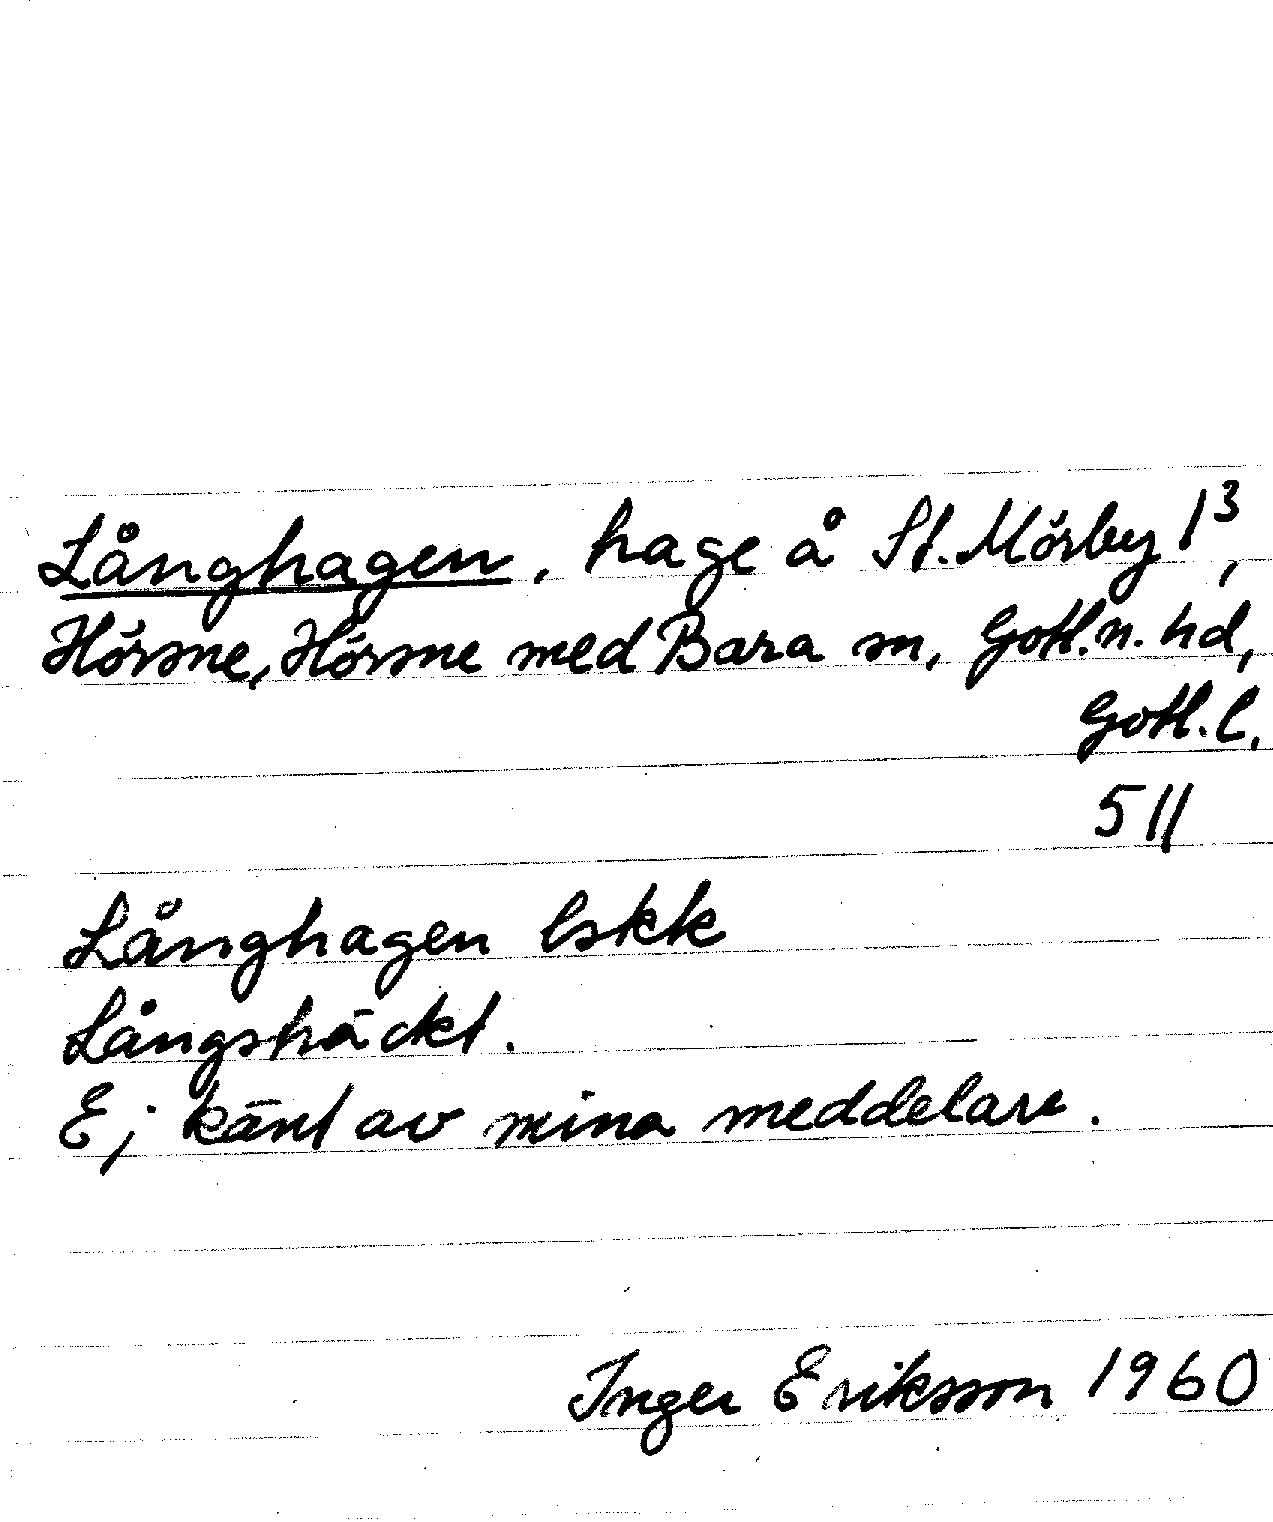 Långhagen, hage å St. Mörby 1³,
Hörsne, Hörsne med Bara sn, Gotl. n. hd,
Gotl. l.
511
Långhagen lskk
Långsträckt.
Ej känt av mina meddelare.
Inger Eriksson 1960